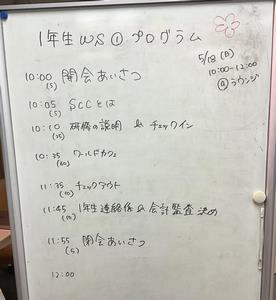 1年生WS①プログラム
5/18(日)
10:00-12:00
@ラウンジ
10:00 開会あいさつ
(5)
10:05 SCCとは
(5)
10:10 研修の説明 & チェックイン
(25)
10:35 ワールドカフェ
(60)
11:35 チェックアウト
(10)
11:45 1年生連絡係&会計監査決め
(10)
11:55 閉会あいさつ
(5)
12:00